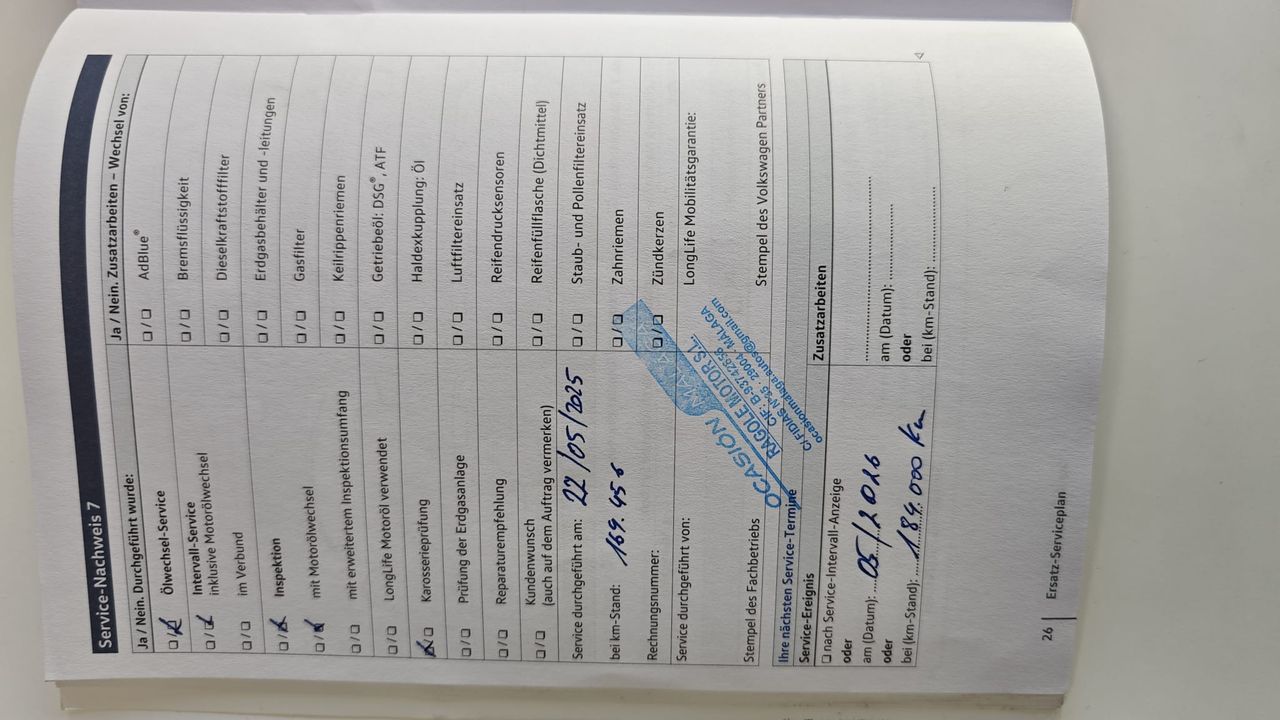 Service-Nachweis 7
Ja / Nein. Durchgeführt wurde:
❑/❑ Ölwechsel-Service
❑/❑ Intervall-Service
inklusive Motorölwechsel
❑/❑ im Verbund
❑/❑ Inspektion
❑/❑ mit Motorölwechsel
❑/❑ mit erweitertem Inspektionsumfang
❑/❑ LongLife Motoröl verwendet
❑/❑ Karosserieprüfung
❑/❑ Prüfung der Erdgasanlage
❑/❑ Reparaturempfehlung
❑/❑ Kundenwunsch
(auch auf dem Auftrag vermerken)
Service durchgeführt am: 22/05/2025
bei km-Stand: 169.456
Rechnungsnummer:
Service durchgeführt von:
Stempel des Fachbetriebs
Ja / Nein. Zusatzarbeiten – Wechsel von:
❑/❑ AdBlue®
❑/❑ Bremsflüssigkeit
❑/❑ Dieselkraftstofffilter
❑/❑ Erdgasbehälter und -leitungen
❑/❑ Gasfilter
❑/❑ Keilrippenriemen
❑/❑ Getriebeöl: DSG®, ATF
❑/❑ Haldexkupplung: Öl
❑/❑ Luftfiltereinsatz
❑/❑ Reifendrucksensoren
❑/❑ Reifenfüllflasche (Dichtmittel)
❑/❑ Staub- und Pollenfiltereinsatz
❑/❑ Zahnriemen
❑/❑ Zündkerzen
LongLife Mobilitätsgarantie:
Stempel des Volkswagen Partners
OCASIÓN
MALAGA
RAGOLE MOTOR S.L.
CIF: B-93742656
C/ FIDIAS Nº 45 - 29004 MALAGA
ocasionmalaga.autos@gmail.com
Ihre nächsten Service-Termine
Service-Ereignis
❑ nach Service-Intervall-Anzeige
oder
am (Datum): 05/2026
oder
bei (km-Stand): 184.000 Km
Zusatzarbeiten
am (Datum):
oder
bei (km-Stand):
26 Ersatz-Serviceplan